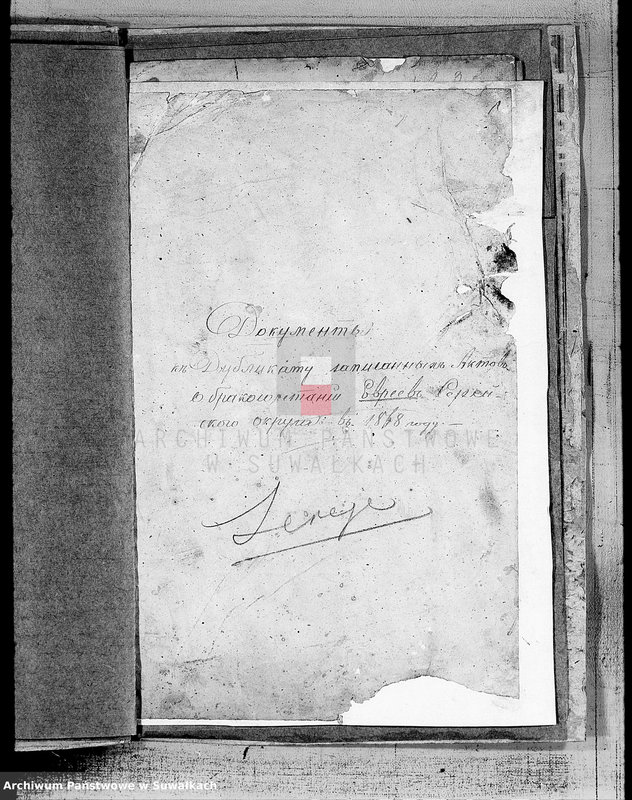 Документы
къ Дубликату записанныхъ Актовъ
о бракосочетаніи Евреевъ Серей-
скаго округа въ 1868 году.
Sereje
ARCHIWUM PAŃSTWOWE
W SUWAŁKACH
Archiwum Państwowe w Suwałkach